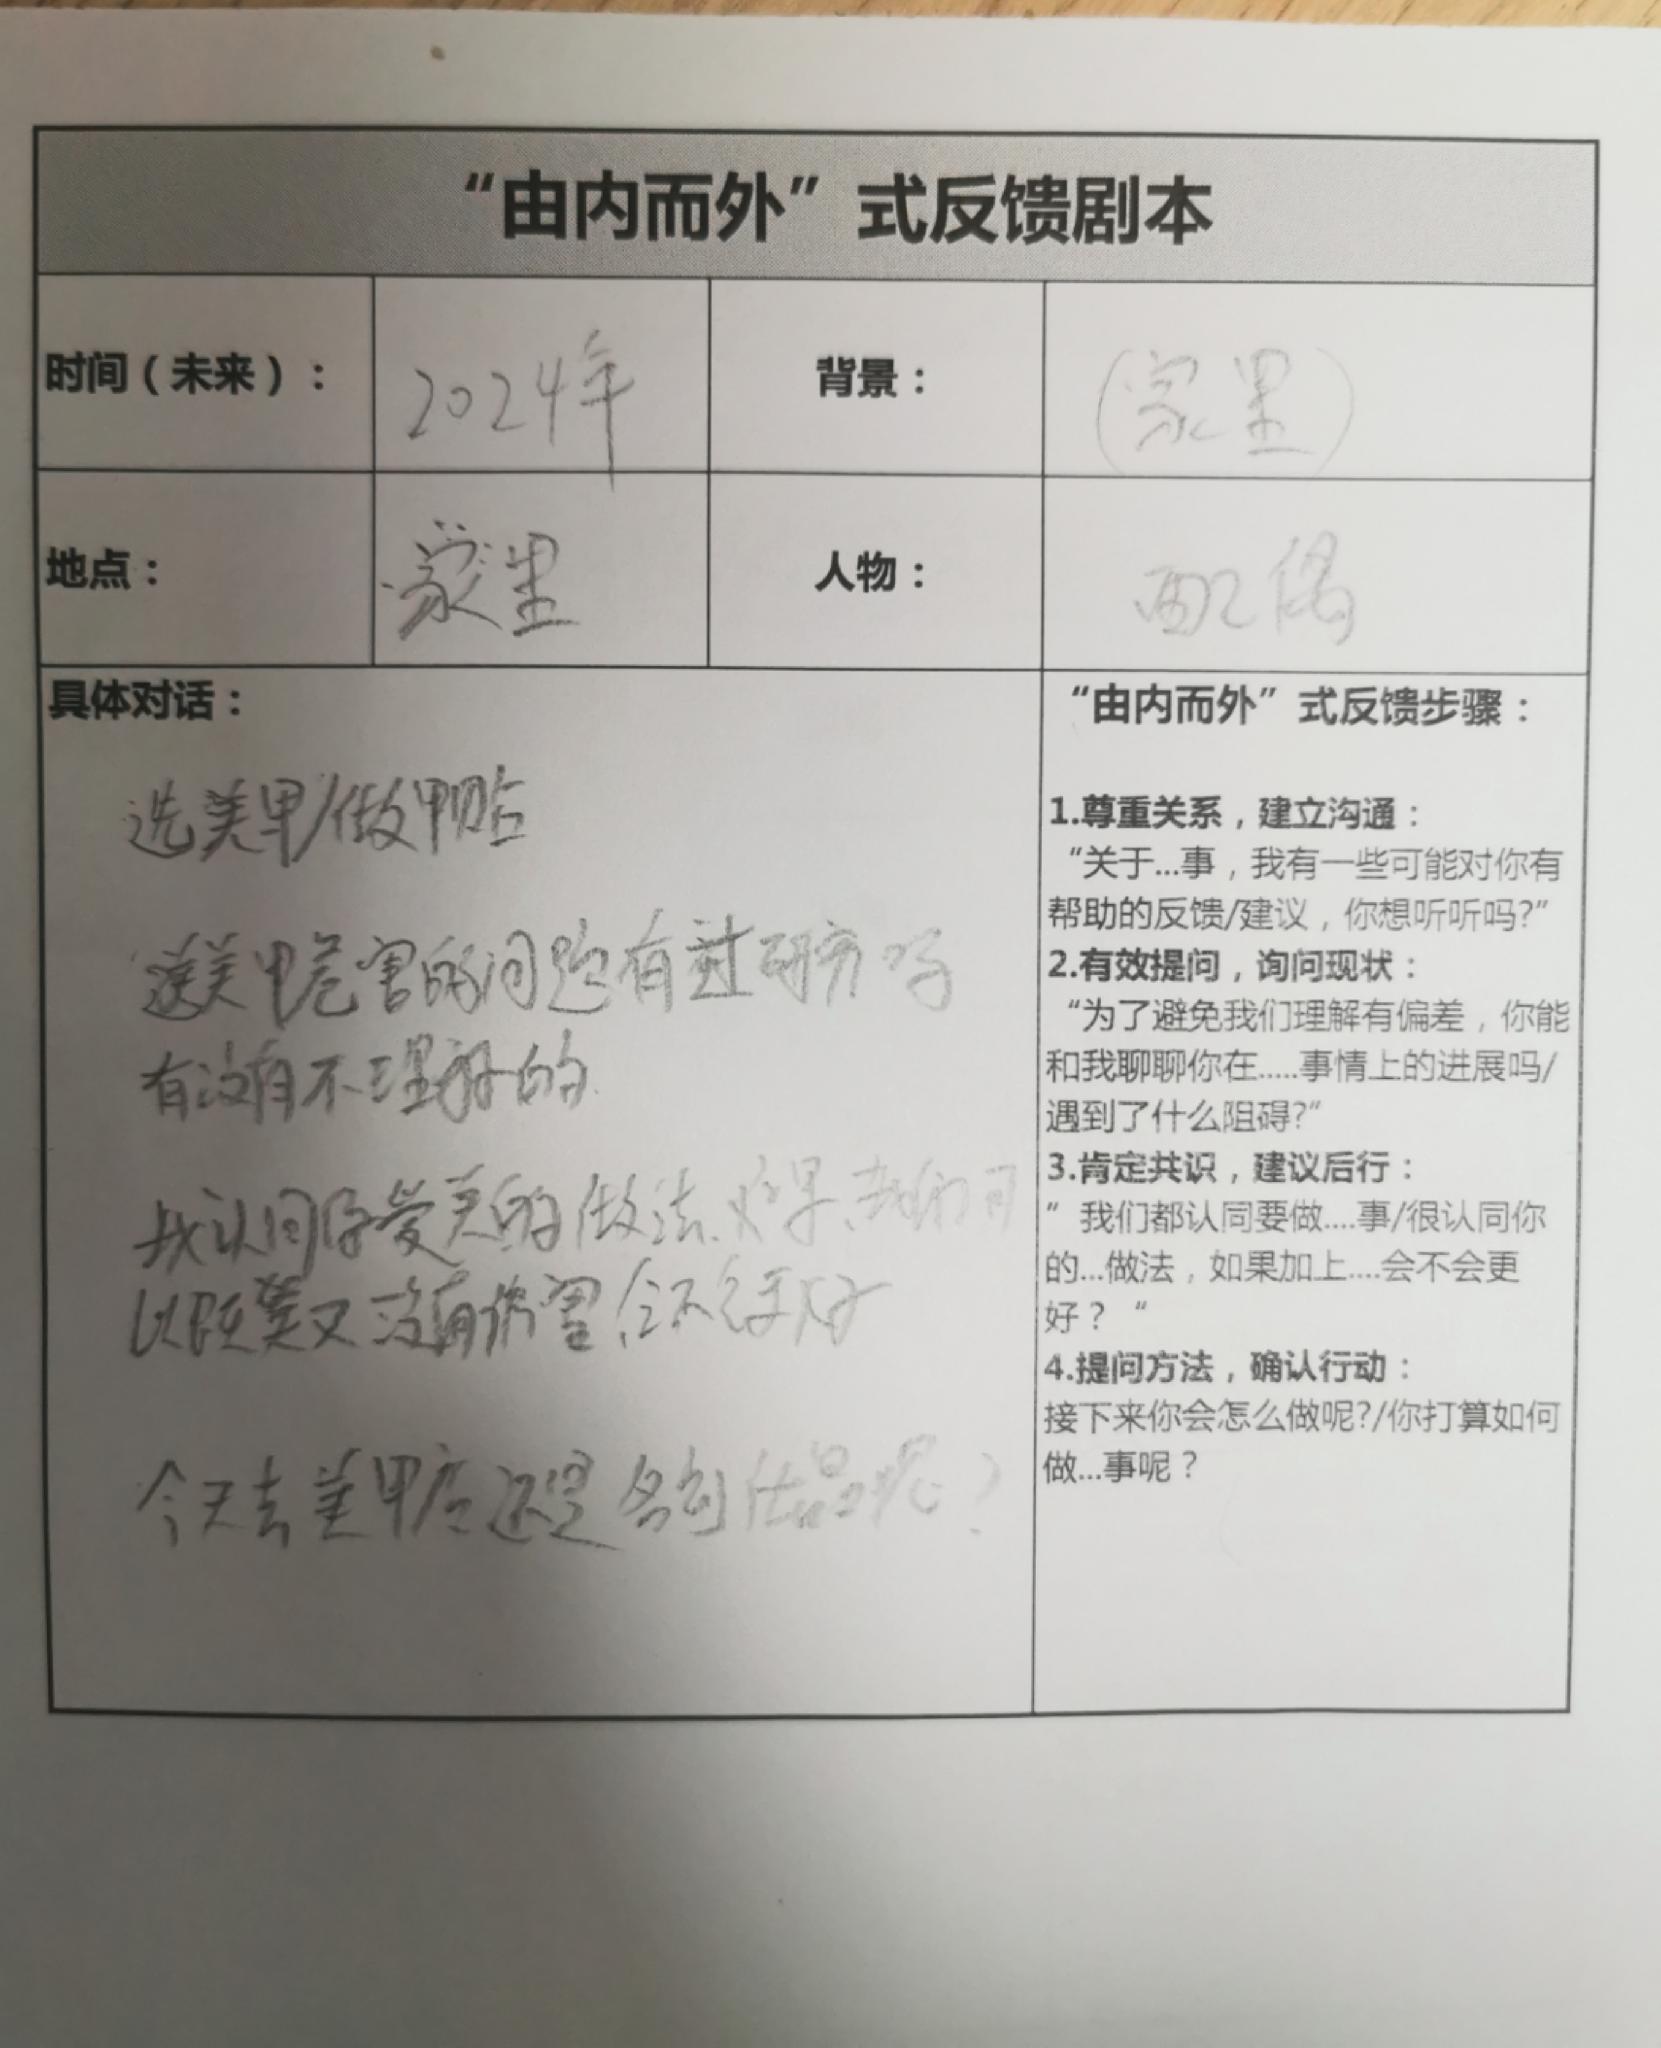 “由内而外”式反馈剧本
时间（未来）：
2024年
背景：
（家里）
地点：
家里
人物：
配偶
具体对话：
选美甲/做甲贴
美甲危害的问题有过研究吗
有没有不理解的
我认同你爱美的做法.如果.我们可
以既美又没有伤害会不会更好
今天去美甲店还是
“由内而外”式反馈步骤：
1.尊重关系，建立沟通：
“关于...事，我有一些可能对你有
帮助的反馈/建议，你想听听吗?”
2.有效提问，询问现状：
“为了避免我们理解有偏差，你能
和我聊聊你在.....事情上的进展吗/
遇到了什么阻碍?”
3.肯定共识，建议后行：
“ 我们都认同要做....事/很认同你
的...做法，如果加上....会不会更
好？ “
4.提问方法，确认行动：
接下来你会怎么做呢?/你打算如何
做...事呢？